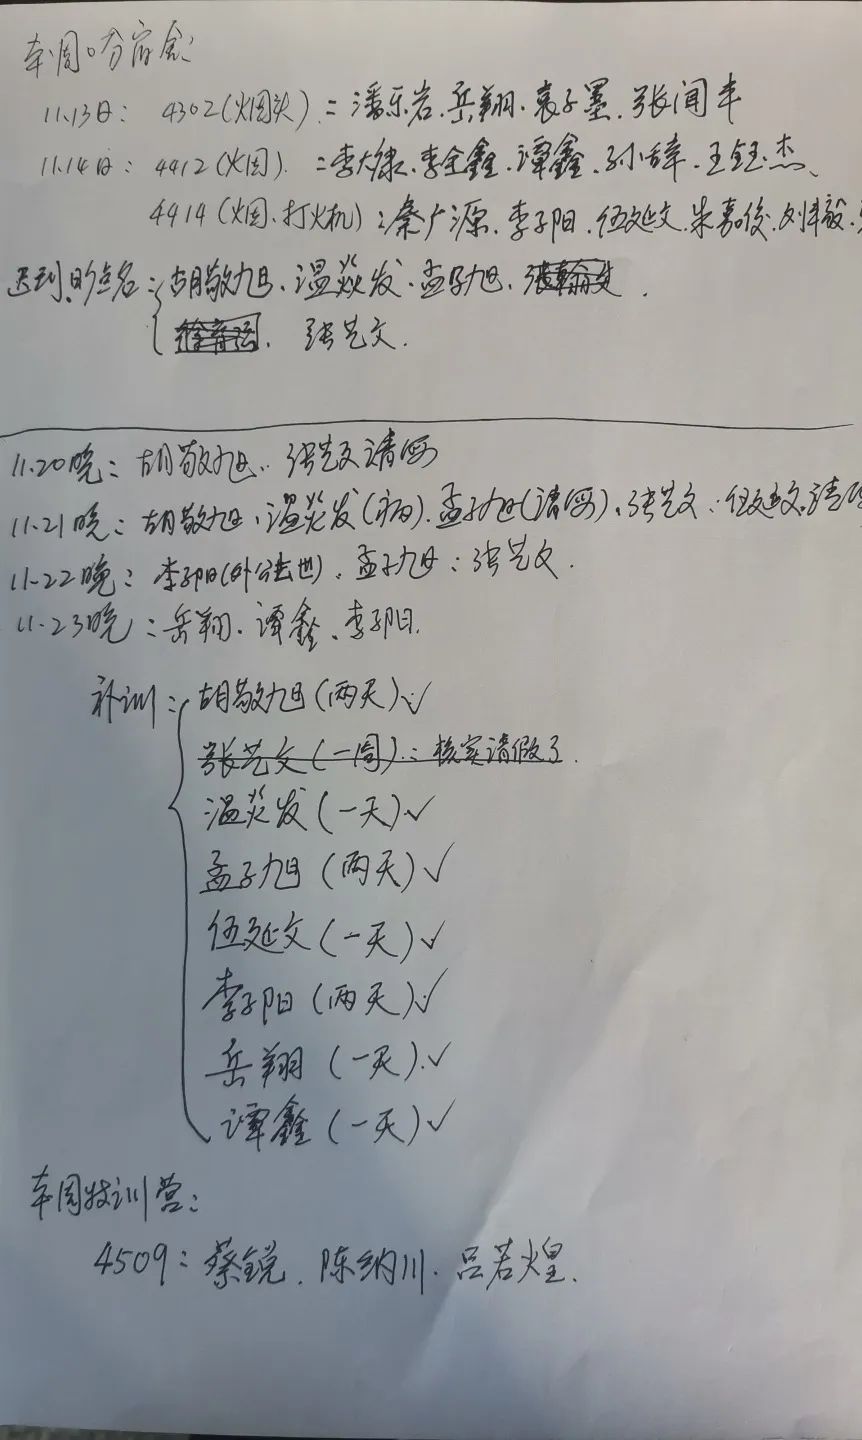 本周扣分宿舍:
11.13日: 4302(烟头): 潘乐岩、岳翔、袁子墨、张闻丰
11.14日: 4412(烟): 李大康、李全鑫、谭鑫、孙辞、王钰杰、
4414(烟、打火机): 秦广源、李子阳、伍延文、朱嘉俊、刘毅、
迟到、点名: 胡敬旭、温焱发、孟子旭、
张艺文.
11.20晚: 胡敬旭、张艺文请假
11.21晚: 胡敬旭、温炎发(病)、孟子旭(请假)、张艺文、伍延文请
11.22晚: 李子阳(外公去世)、孟子旭、张艺文.
11.23晚: 岳翔、谭鑫、李子阳.
补训: 胡敬旭(两天)✓
张艺文(一周): 核实请假了.
温炎发(一天)✓
孟子旭(两天)✓
伍延文(一天)✓
李子阳(两天)✓
岳翔(一天)✓
谭鑫(一天)✓
本周特训营:
4509: 蔡锐、陈纳川、吕若煌.